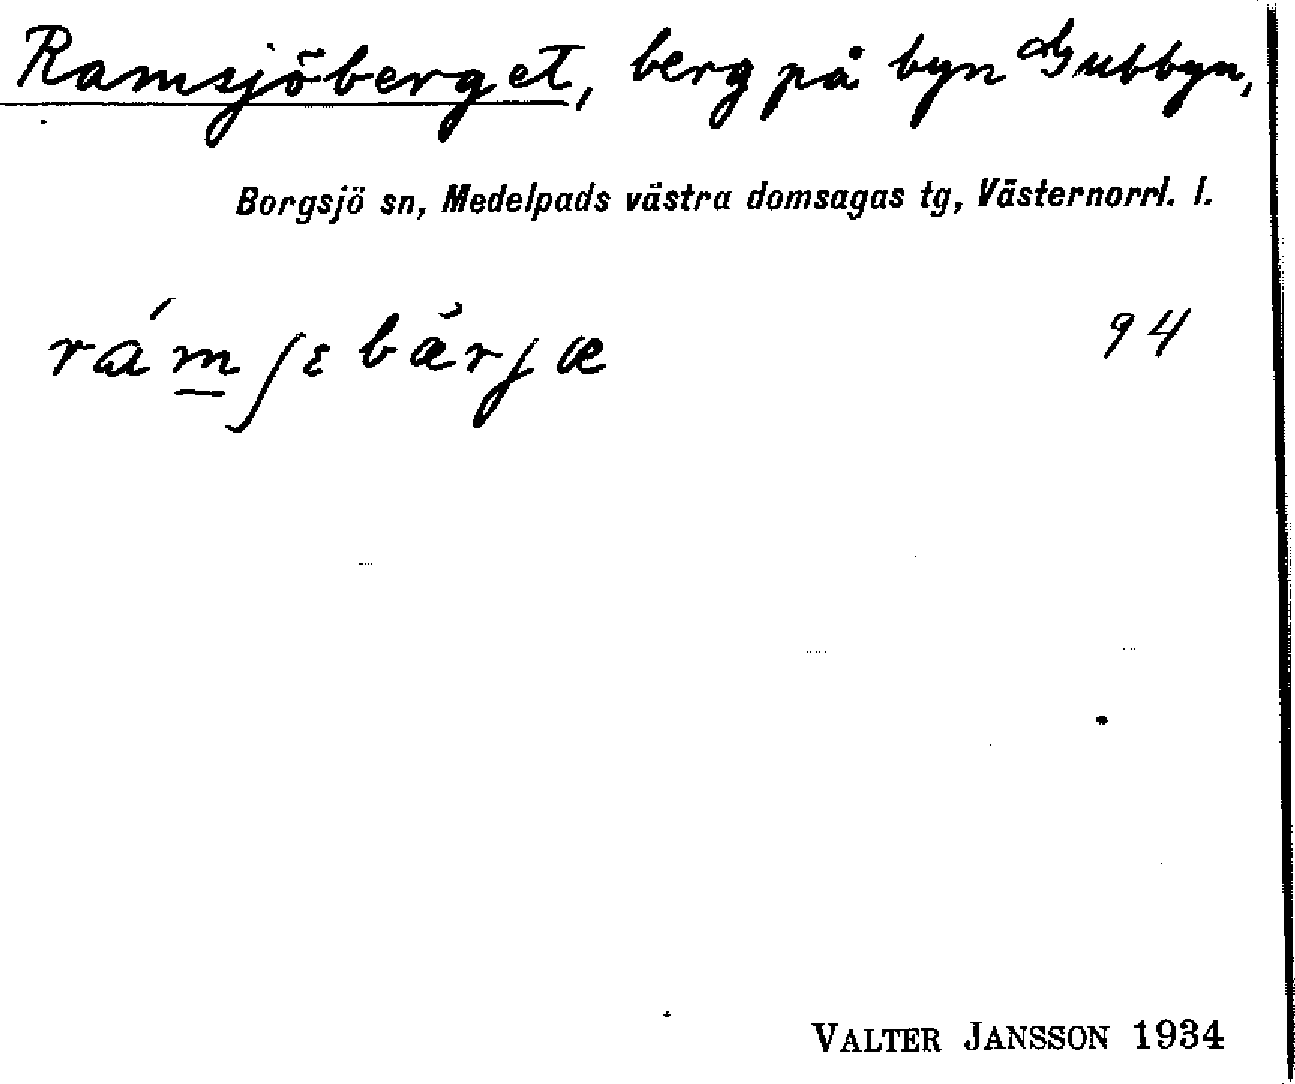 Ramsjöberget, berg på byn Gubbyn,
Borgsjö sn, Medelpads västra domsagas tg, Västernorrl. l.
rám̲ʃɛbæ̀rjæ 94
VALTER JANSSON 1934